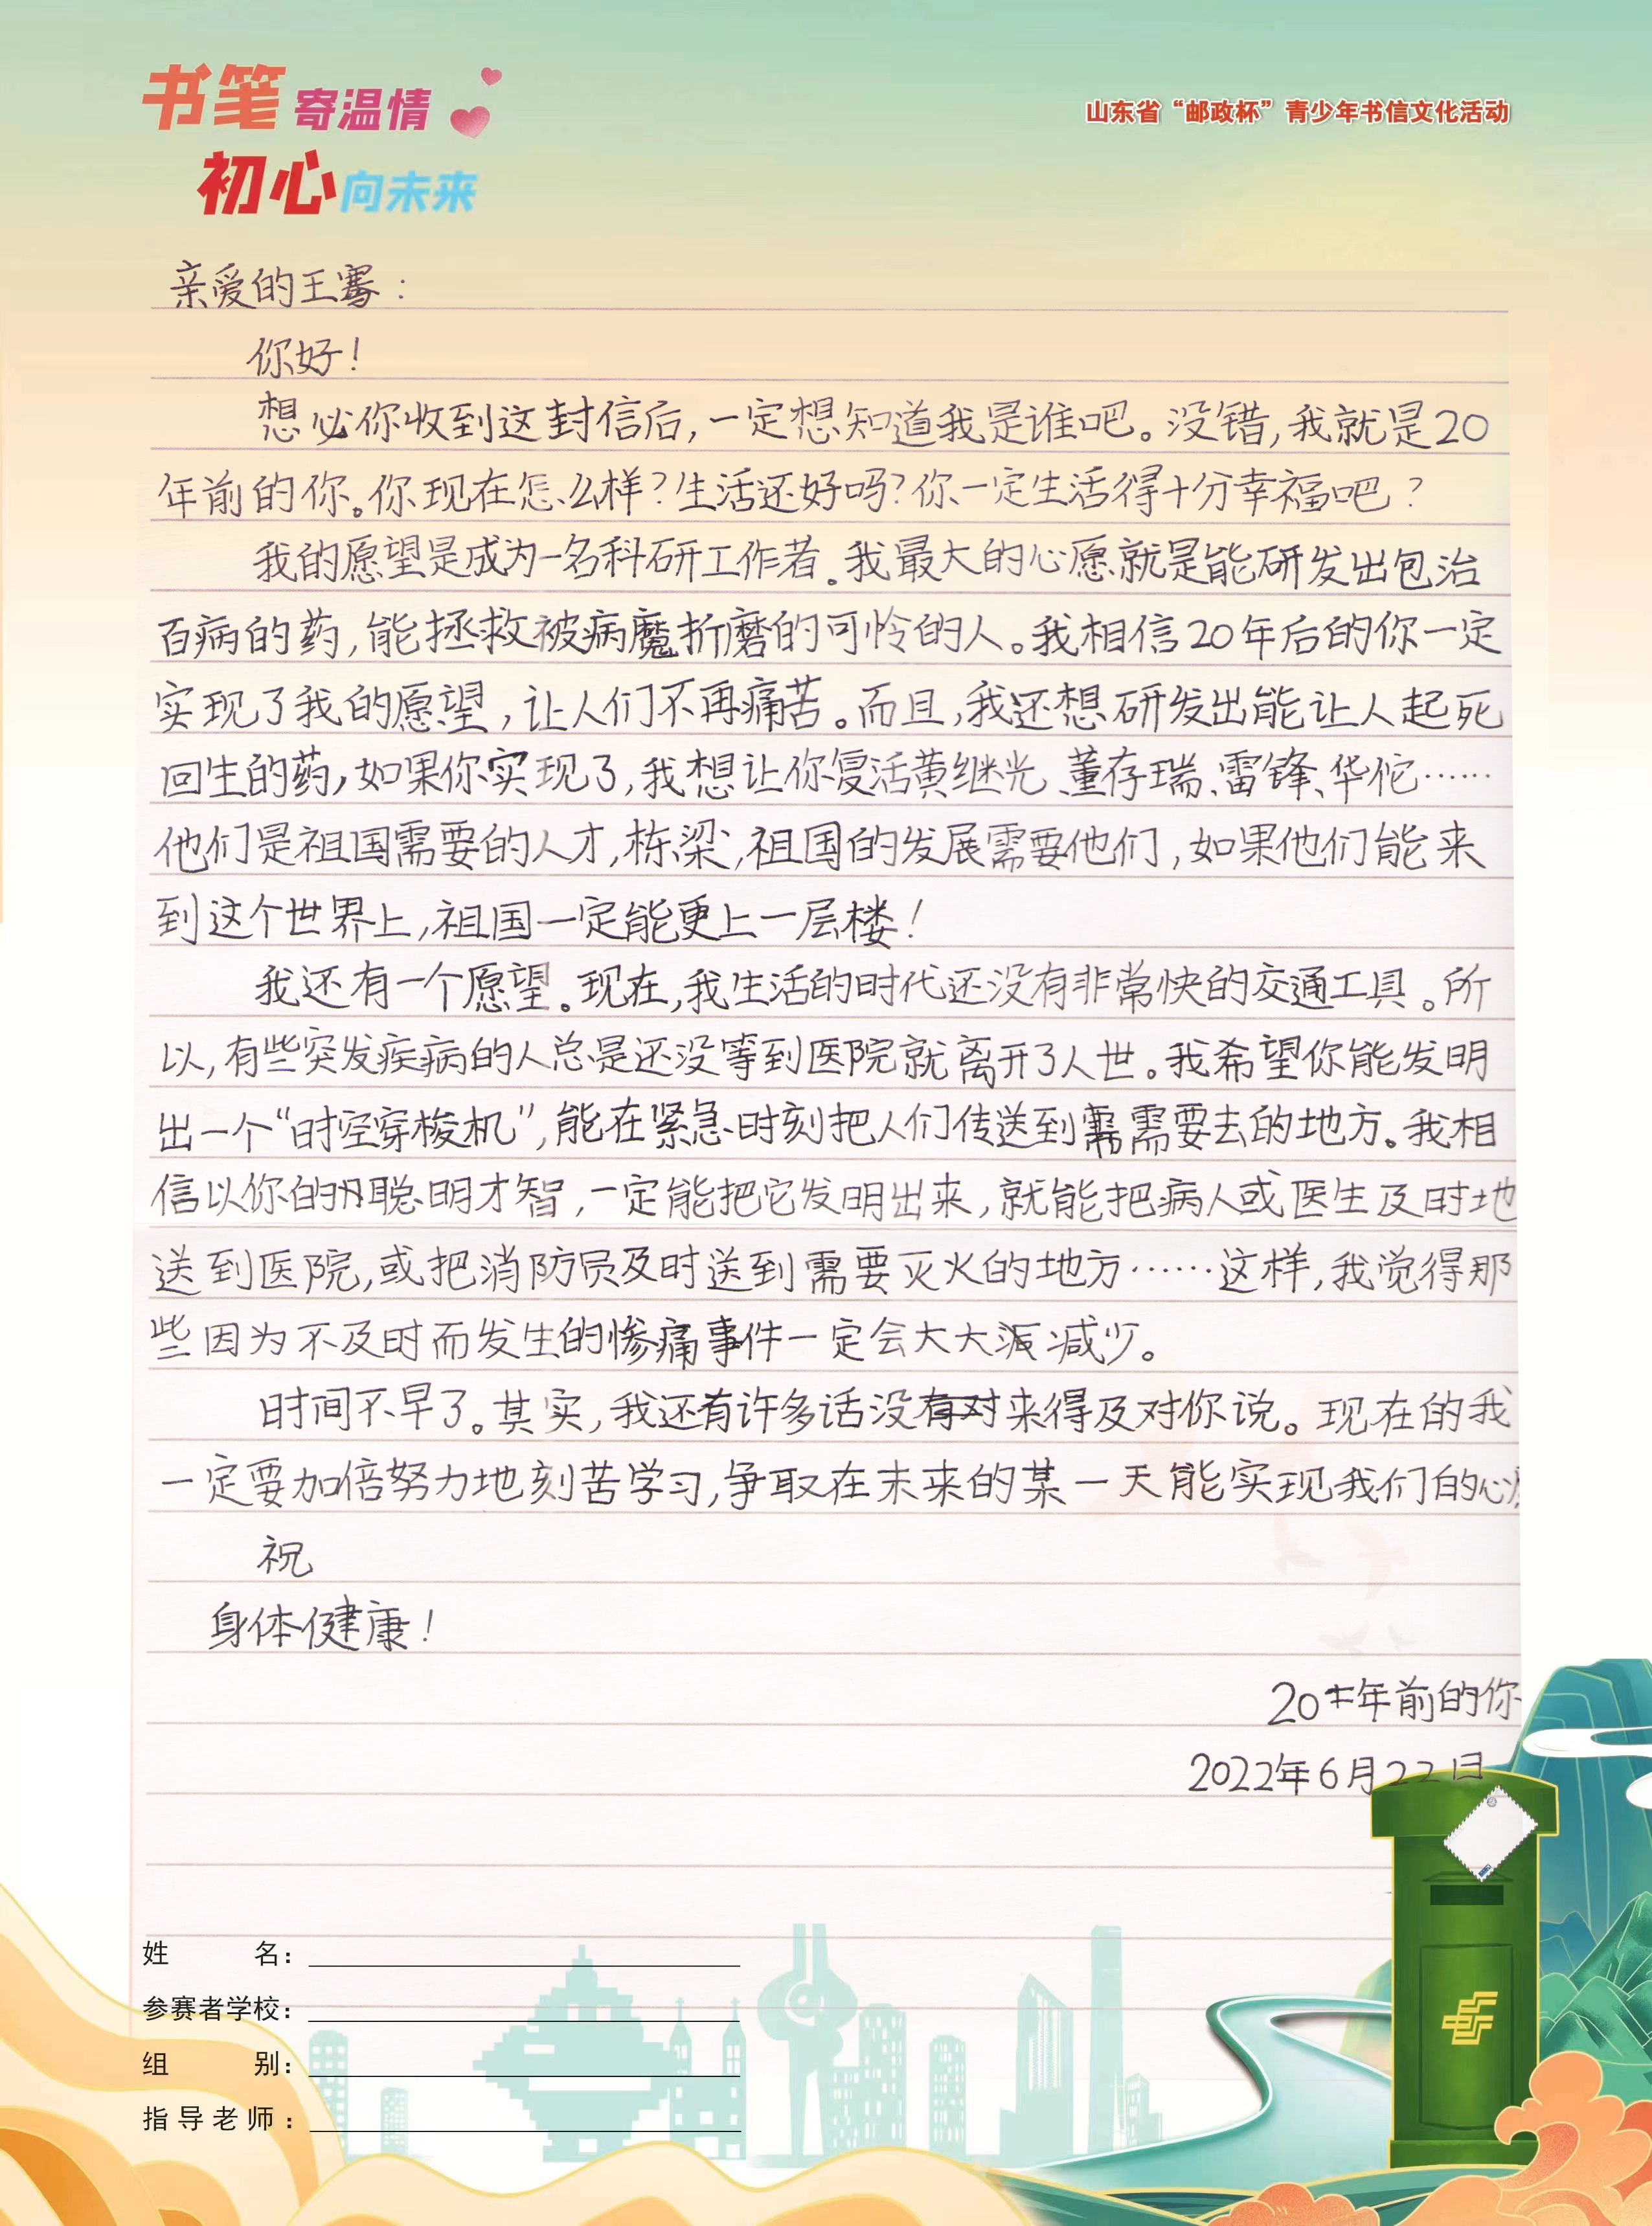 书笔寄温情
初心向未来
山东省“邮政杯”青少年书信文化活动
亲爱的王骞：
你好！
想必你收到这封信后，一定想知道我是谁吧。没错，我就是20
年前的你。你现在怎么样？生活还好吗？你一定生活得十分幸福吧？
我的愿望是成为一名科研工作者。我最大的心愿就是能研发出包治
百病的药，能拯救被病魔折磨的可怜的人。我相信20年后的你一定
实现了我的愿望，让人们不再痛苦。而且，我还想研发出能让人起死
回生的药，如果你实现了，我想让你复活黄继光、董存瑞、雷锋、华佗……
他们是祖国需要的人才，栋梁，祖国的发展需要他们，如果他们能来
到这个世界上，祖国一定能更上一层楼！
我还有一个愿望。现在，我生活的时代还没有非常快的交通工具。所
以，有些突发疾病的人总是还没等到医院就离开了人世。我希望你能发明
出一个“时空穿梭机”，能在紧急时刻把人们传送到需要去的地方。我相
信以你的聪明才智，一定能把它发明出来，就能把病人或医生及时地
送到医院，或把消防员及时送到需要灭火的地方……这样，我觉得那
些因为不及时而发生的惨痛事件一定会大大减少。
时间不早了。其实，我还有许多话没来得及对你说。现在的我
一定要加倍努力地刻苦学习，争取在未来的某一天能实现我们的心
祝
身体健康！
20年前的你
2022年6月22日
姓名：
参赛者学校：
组别：
指导老师：